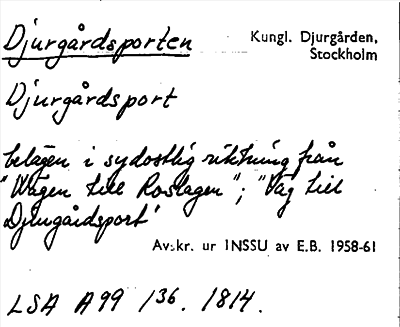 Djurgårdsporten
Kungl. Djurgården,
Stockholm
Djurgårdsport
belägen i sydostlig riktning från
"Wägen till Roslagen"; "Väg till
Djurgårdsport"
Avskr. ur INSSU av E.B. 1958-61
LSA A99 136. 1814.